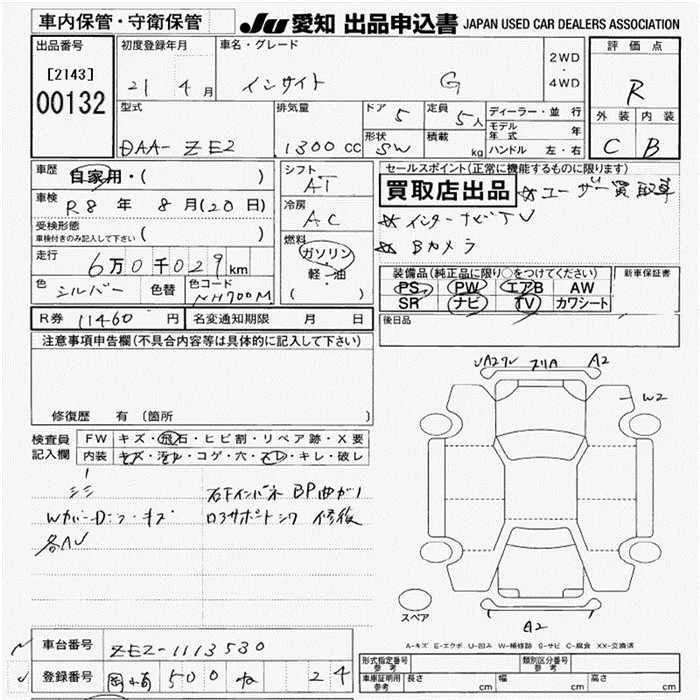 車内保管・守衛保管
JU 愛知 出品申込書 JAPAN USED CAR DEALERS ASSOCIATION
出品番号
[2143]
00132
初度登録年月
21 4 月
車名・グレード
インサイト G
2WD
・
4WD
評価点
R
外装 内装
C B
型式
DAA-ZE2
排気量
1300 CC
ドア 5
定員 5人
形状 SW
積載 kg
ディーラー・並行
モデル年式 年
ハンドル 左・右
車歴
自家用・( )
車検
R8 年 8月(20日)
受検形態
車検付きのみ記入して下さい ( )
走行
6万0千029km
色 シルバー 色替
色コード NH700M
シフト
AT
冷房
AC
燃料
ガソリン
・
軽油
( )
セールスポイント(正常に機能するものに限ります)
買取店出品 ☆ユーザー買取車
☆インターナビTV
☆Bカメラ
装備品(純正品に限り○をつけてください)
PS PW エアB AW
SR ナビ TV カワシート
新車保証書
後日品
R券 11460 円 名変通知期限 月 日
注意事項申告欄(不具合内容等は具体的に記入して下さい)
修復歴 有(箇所 )
検査員
記入欄
FW キズ・飛石・ヒビ割・リペア跡・X要
内装 キズ・汚れ・コゲ・穴・スレ・キレ・破レ
シミ
Wカバー
各AU
右FインパネBP曲ガリ
コアサポートシワ 修後
A2 リA A2
W2
A2
スペア
A-キズ E-エクボ U-凹み W-補修跡 S-サビ C-腐食 XX-交換済
車台番号 ZE2-1113530
登録番号 岡崎 500 ね 24
形式指定番号
参考
類別区分番号
参考
車庫証明用
参考
長さ cm 幅 cm 高さ cm